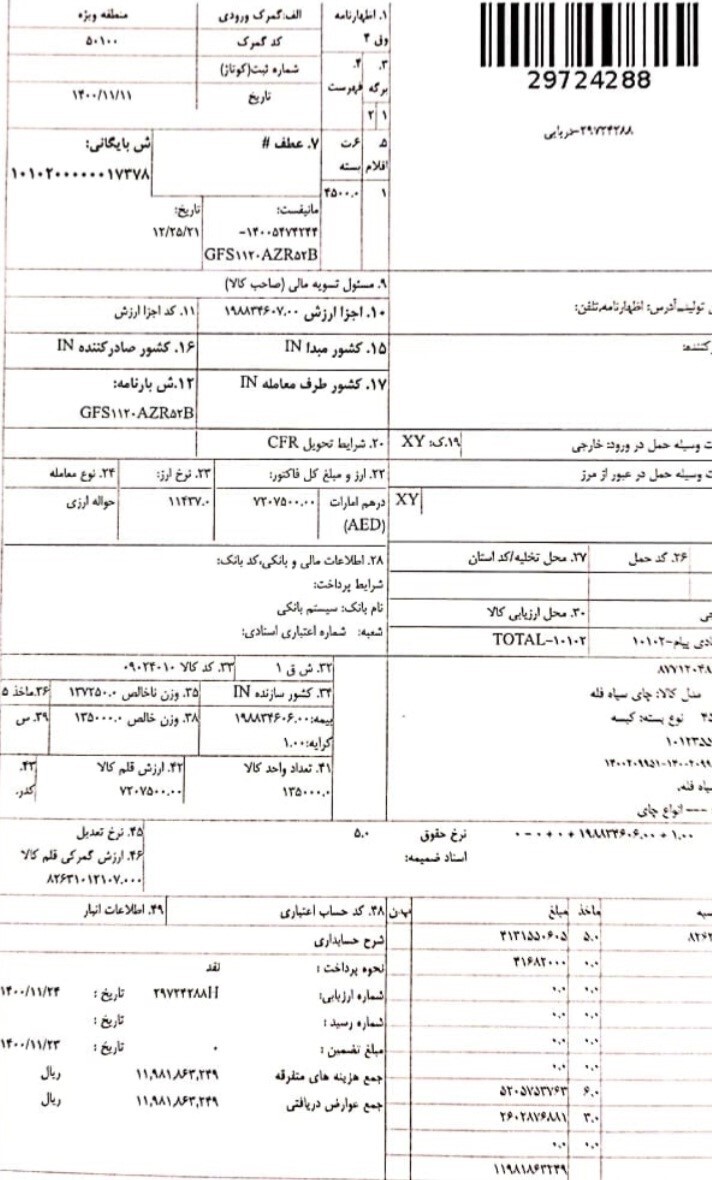 29724288
۲۹۷۲۴۲۸۸-دریایی
۱. اظهارنامه
وق ۴
الف: گمرک ورودی
منطقه ویژه
کد گمرک
۵۰۱۰۰
شماره ثبت(کوتاژ)
تاریخ
۱۴۰۰/۱۱/۱۱
۳. برگه
۴. فهرست
۱ ۲
۵ اقلام
۶ت بسته
۱
۴۵۰۰.۰
۷. عطف #
ش بایگانی:
۱۰۱۰۲۰۰۰۰۰۰۱۷۳۷۸
مانیفست:
تاریخ:
۱۴۰۰۵۴۷۴۲۴۴-
۱۲/۲۵/۲۱
GFS۱۱۲۰AZR۵۲B
۹. مسئول تسویه مالی (صاحب کالا)
۱۰. اجزا ارزش ۱۹۸۸۳۴۶۰۷.۰۰
۱۱. کد اجزا ارزش
تولید،آدرس: اظهارنامه،تلفن:
۱۵. کشور مبدا IN
۱۶. کشور صادرکننده IN
۱۷. کشور طرف معامله IN
۱۲.ش بارنامه:
GFS۱۱۲۰AZR۵۲B
ت وسیله حمل در ورود: خارجی
۱۹.ک: XY
۲۰. شرایط تحویل CFR
ت وسیله حمل در عبور از مرز
XY
۲۲. ارز و مبلغ کل فاکتور:
۲۳. نرخ ارز:
۲۴. نوع معامله
درهم امارات
(AED)
۷۲۰۷۵۰۰.۰۰
۱۱۴۳۷.۰
حواله ارزی
۲۶. کد حمل
۲۷. محل تخلیه/کد استان
۲۸. اطلاعات مالی و بانکی،کد بانک:
شرایط پرداخت:
نام بانک: سیستم بانکی
شعبه: شماره اعتباری اسنادی:
۳۰. محل ارزیابی کالا
TOTAL-۱۰۱۰۲
پیام-۱۰۱۰۲
۳۲.ش ق ۱
۳۳. کد کالا ۰۹۰۲۴۰۱۰
۳۴. کشور سازنده IN
۳۵. وزن ناخالص ۱۳۷۲۵۰.۰
۳۶.ماخذ ۵
بیمه:۱۹۸۸۳۴۶۰۶.۰۰
۳۸. وزن خالص ۱۳۵۰۰۰.۰
۳۹. س
کرایه:۱.۰۰
۴۱. تعداد واحد کالا
۴۲. ارزش قلم کالا
۴۳.
۱۳۵۰۰۰.۰
۷۲۰۷۵۰۰.۰۰
کدر.
مدل کالا: چای سیاه فله
نوع بسته: کیسه
--- انواع چای
۱.۰۰ + ۱۹۸۸۳۴۶۰۶.۰۰ + ۰ + ۰ - ۰
نرخ حقوق
۵.۰
اسناد ضمیمه:
۴۵. نرخ تعدیل
۴۶. ارزش گمرکی قلم کالا
۸۲۶۳۱۰۱۲۱۰۷.۰۰۰
ماخذ
مبلغ
پ.ن
۴۸. کد حساب اعتباری
۴۹. اطلاعات انبار
۵.۰
۴۱۳۱۵۵۰۶۰۵
شرح حسابداری
۰.۰
۴۱۶۸۲۰۰۰
نحوه پرداخت :
نقد
۰.۰
۰.۰
شماره ارزیابی:
۲۹۷۲۴۲۸۸H
تاریخ :
۱۴۰۰/۱۱/۲۴
۰.۰
۰.۰
شماره رسید :
تاریخ :
۰.۰
۰.۰
مبلغ تضمین :
۰
تاریخ :
۱۴۰۰/۱۱/۲۳
۰.۰
۰.۰
جمع هزینه های متفرقه
۱۱,۹۸۱,۸۶۳,۲۴۹
ریال
۶.۰
۵۲۰۵۷۵۳۷۶۳
جمع عوارض دریافتی
۱۱,۹۸۱,۸۶۳,۲۴۹
ریال
۳.۰
۲۶۰۲۸۷۶۸۸۱
۰.۰
۰.۰
۱۱۹۸۱۸۶۳۲۴۹